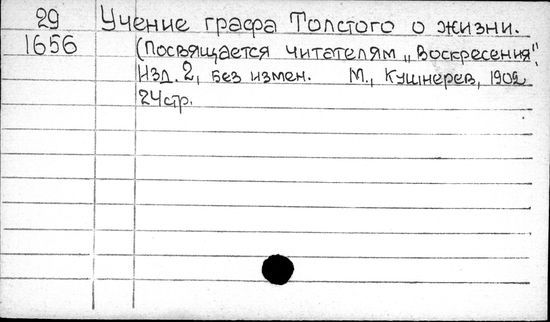 29 Учение графа Толстого о жизни.
1656 (Посвящается читателям „Воскресения".
Изд. 2, без измен. М., Кушнерев, 1902
24 стр.